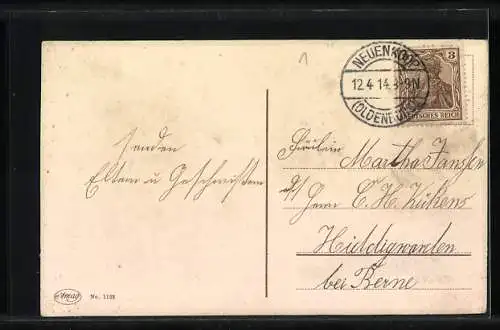 NEUENKOOP
12.4.14.8-9N
(OLDENBURG)
3
DEUTSCHES REICH
1
senden
Eltern u Geschwistern
Fräulein Martha Janssen
Herrn C. H. Kükens
Hiddigwarden
bei Berne
Amag No. 1103